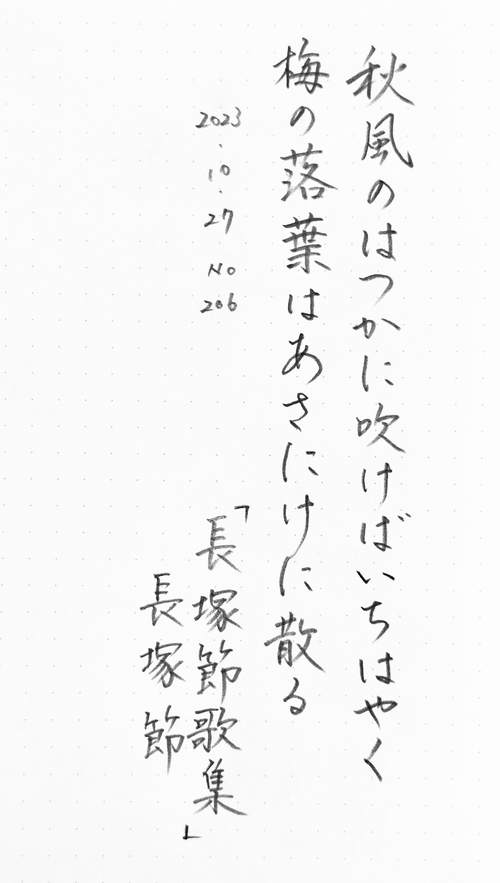 秋風のはつかに吹けばいちはやく
梅の落葉はあさにけに散る
2023.10.27 No 206
「長塚節歌集」
長塚節